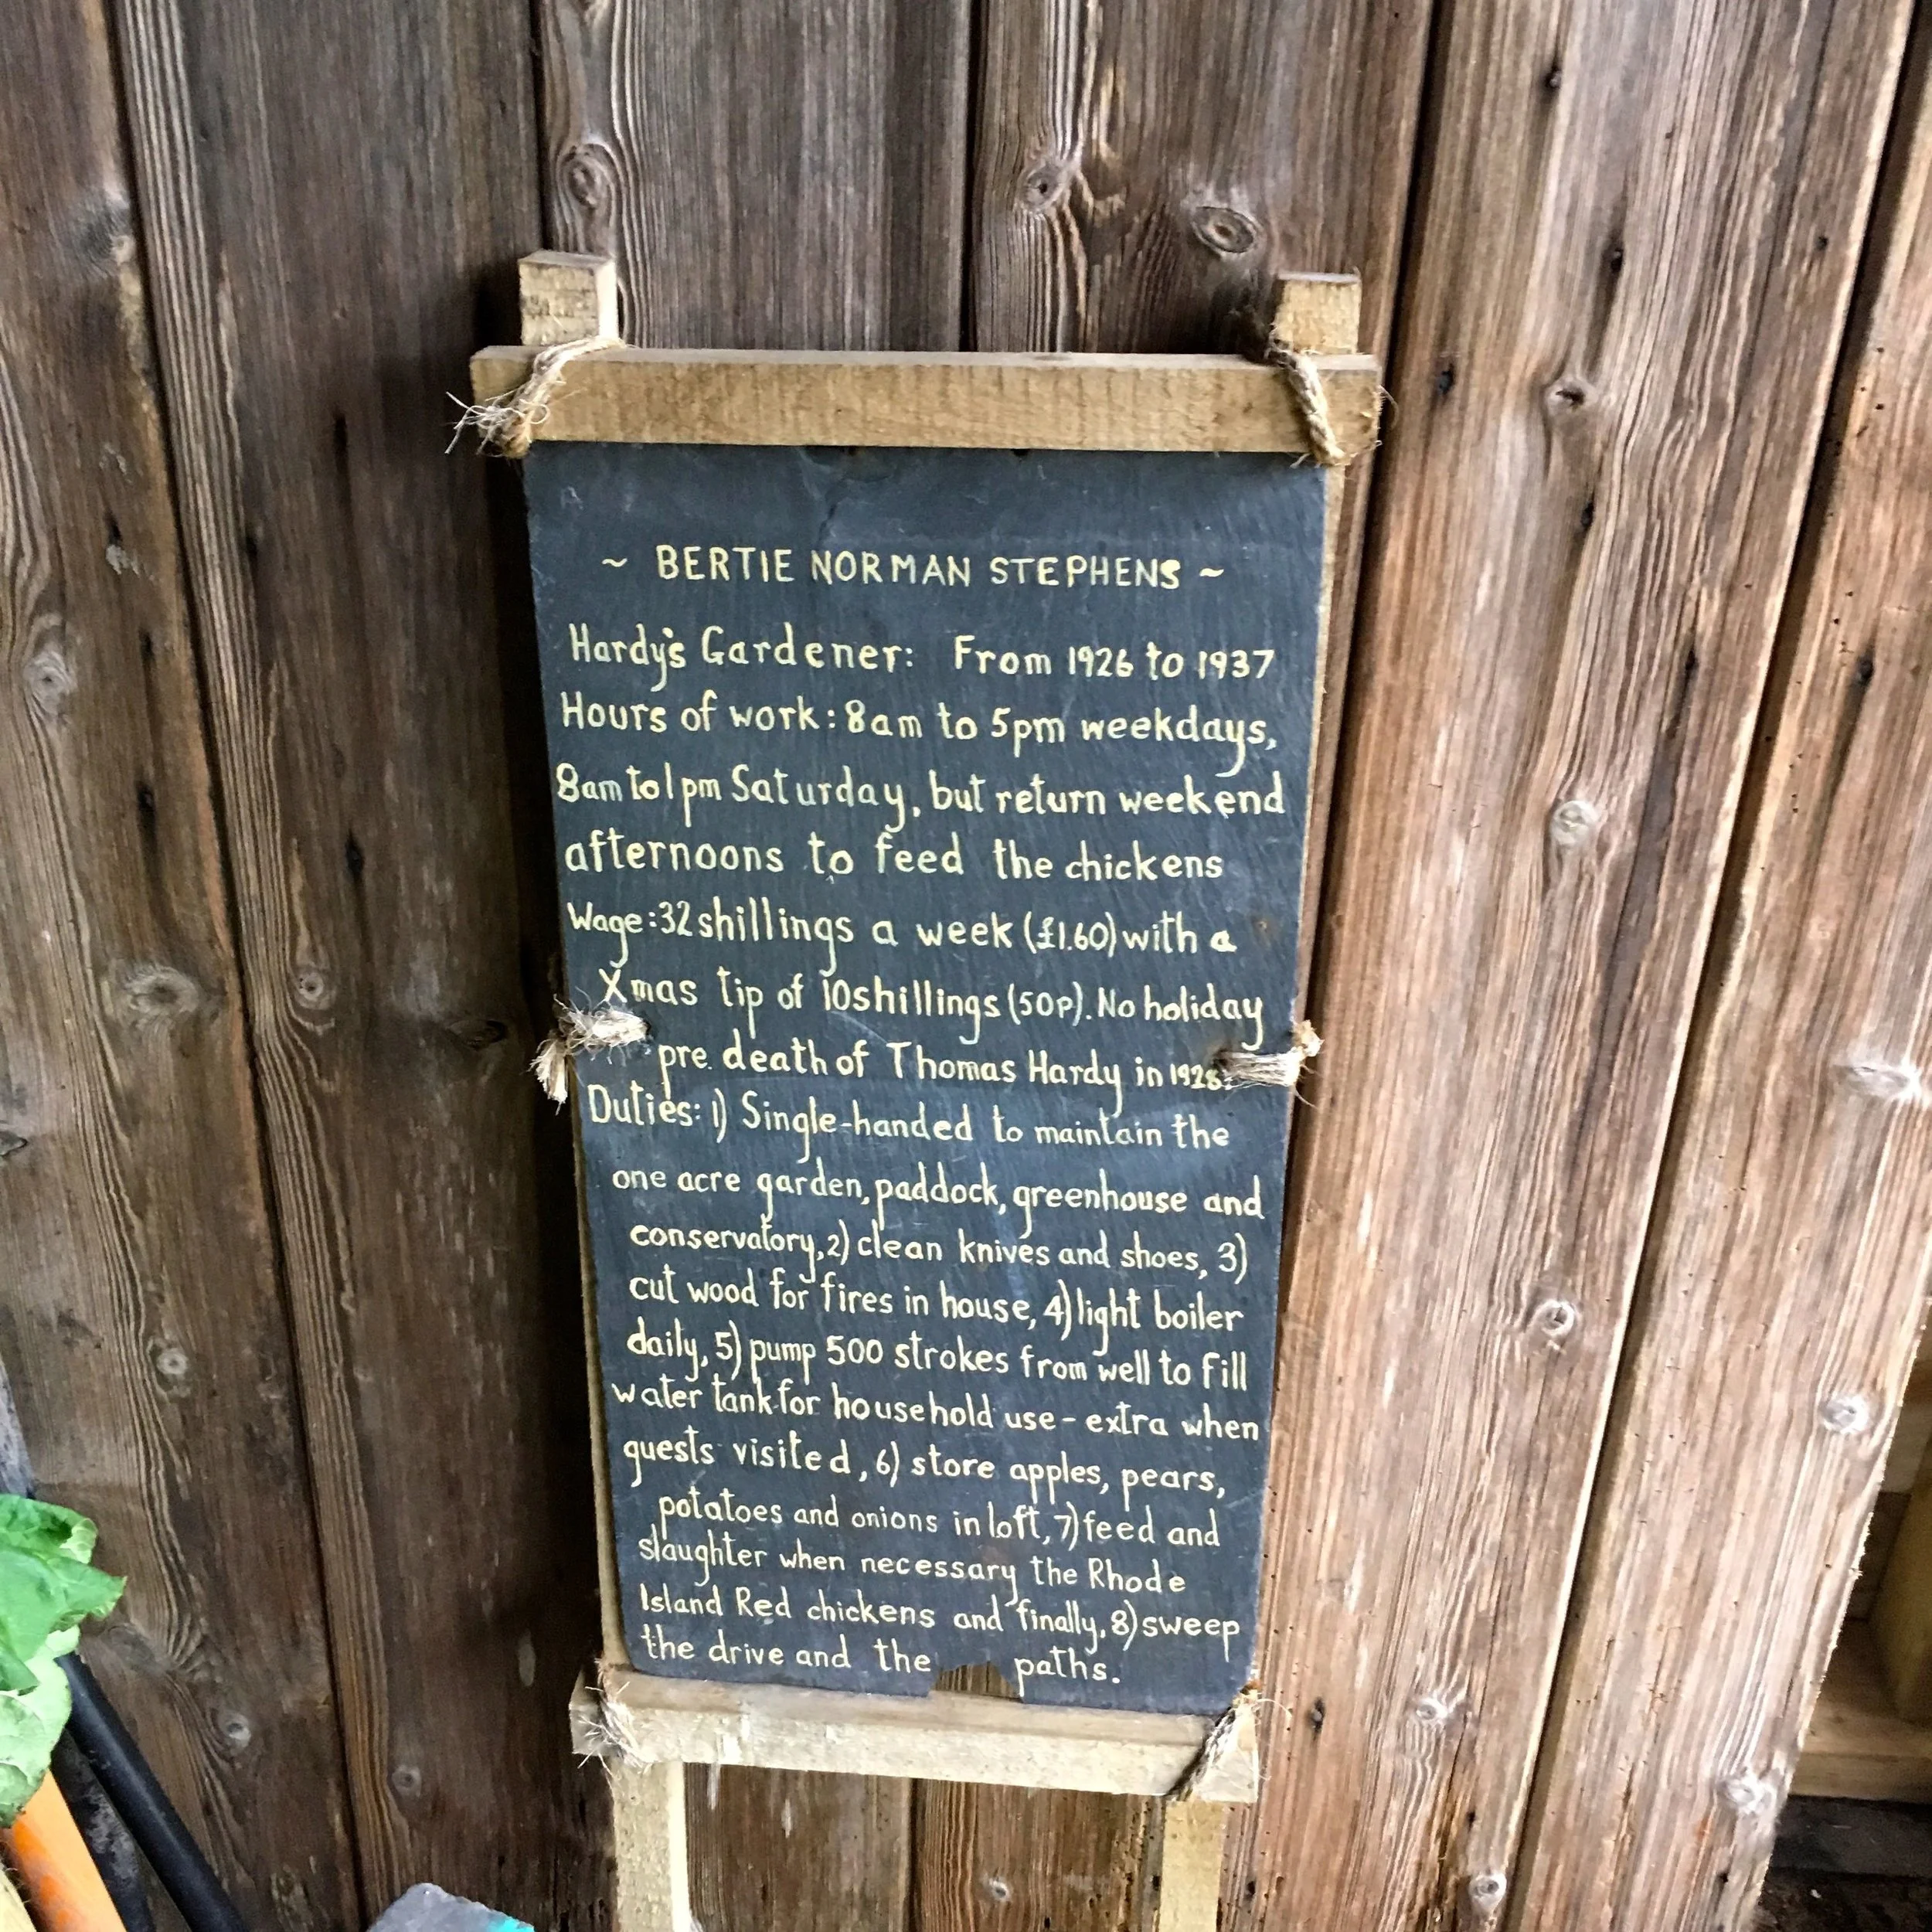 ~ BERTIE NORMAN STEPHENS ~
Hardy's Gardener: From 1926 to 1937
Hours of work: 8am to 5pm weekdays,
8am to 1pm Saturday, but return weekend
afternoons to feed the chickens
Wage: 32 shillings a week (£1.60) with a
Xmas tip of 10 shillings (50p). No holiday
pre death of Thomas Hardy in 1928.
Duties: 1) Single-handed to maintain the
one acre garden, paddock, greenhouse and
conservatory, 2) clean knives and shoes, 3)
cut wood for fires in house, 4) light boiler
daily, 5) pump 500 strokes from well to fill
water tank for household use - extra when
guests visited, 6) store apples, pears,
potatoes and onions in loft, 7) feed and
slaughter when necessary the Rhode
Island Red chickens and finally, 8) sweep
the drive and the paths.